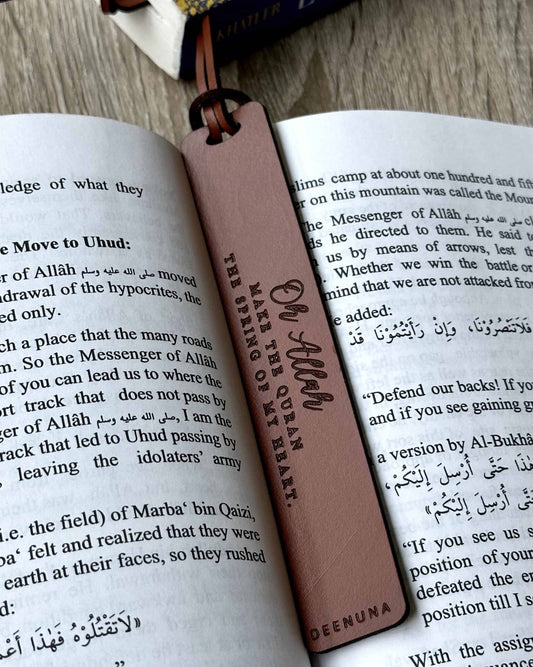 KHATTER
ledge of what they
e Move to Uhud:
er of Allâh صلى الله عليه وسلم moved
hdrawal of the hypocrites, the
ed only.
ch a place that the many roads
m. So the Messenger of Allâh
of you can lead us to where the
ort track that does not pass by
ger of Allâh صلى الله عليه وسلم, I am the
track that led to Uhud passing by
, leaving the idolaters' army
i.e. the field) of Marba‘ bin Qaizi,
ba‘ felt and realized that they were
earth at their faces, so they rushed
d:
«لَاتَقْتُلُوْهُ فَهٰذَا
Oh Allah
MAKE THE QURAN
THE SPRING OF MY HEART.
DEENUNA
slims camp at about one hundred and fift
er on this mountain was called the Moun
The Messenger of Allâh صلى الله عليه وسلم cl
ds he directed to them. He said to
us by means of arrows, lest th
. Whether we win the battle or
mind that we are not attacked from
e added:
فَلَاتَنْصُرُوْنَا، وَإِنْ رَأَيْتُمُوْنَا قَدْ
“Defend our backs! If you
and if you see gaining gr
a version by Al-Bukhâ
هٰذَا حَتَّى أُرْسِلَ إِلَيْكُمْ،
حَتَّى أُرْسِلَ إِلَيْكُمْ»
“If you see us s
position of your
defeated the en
position till I s
With the assig